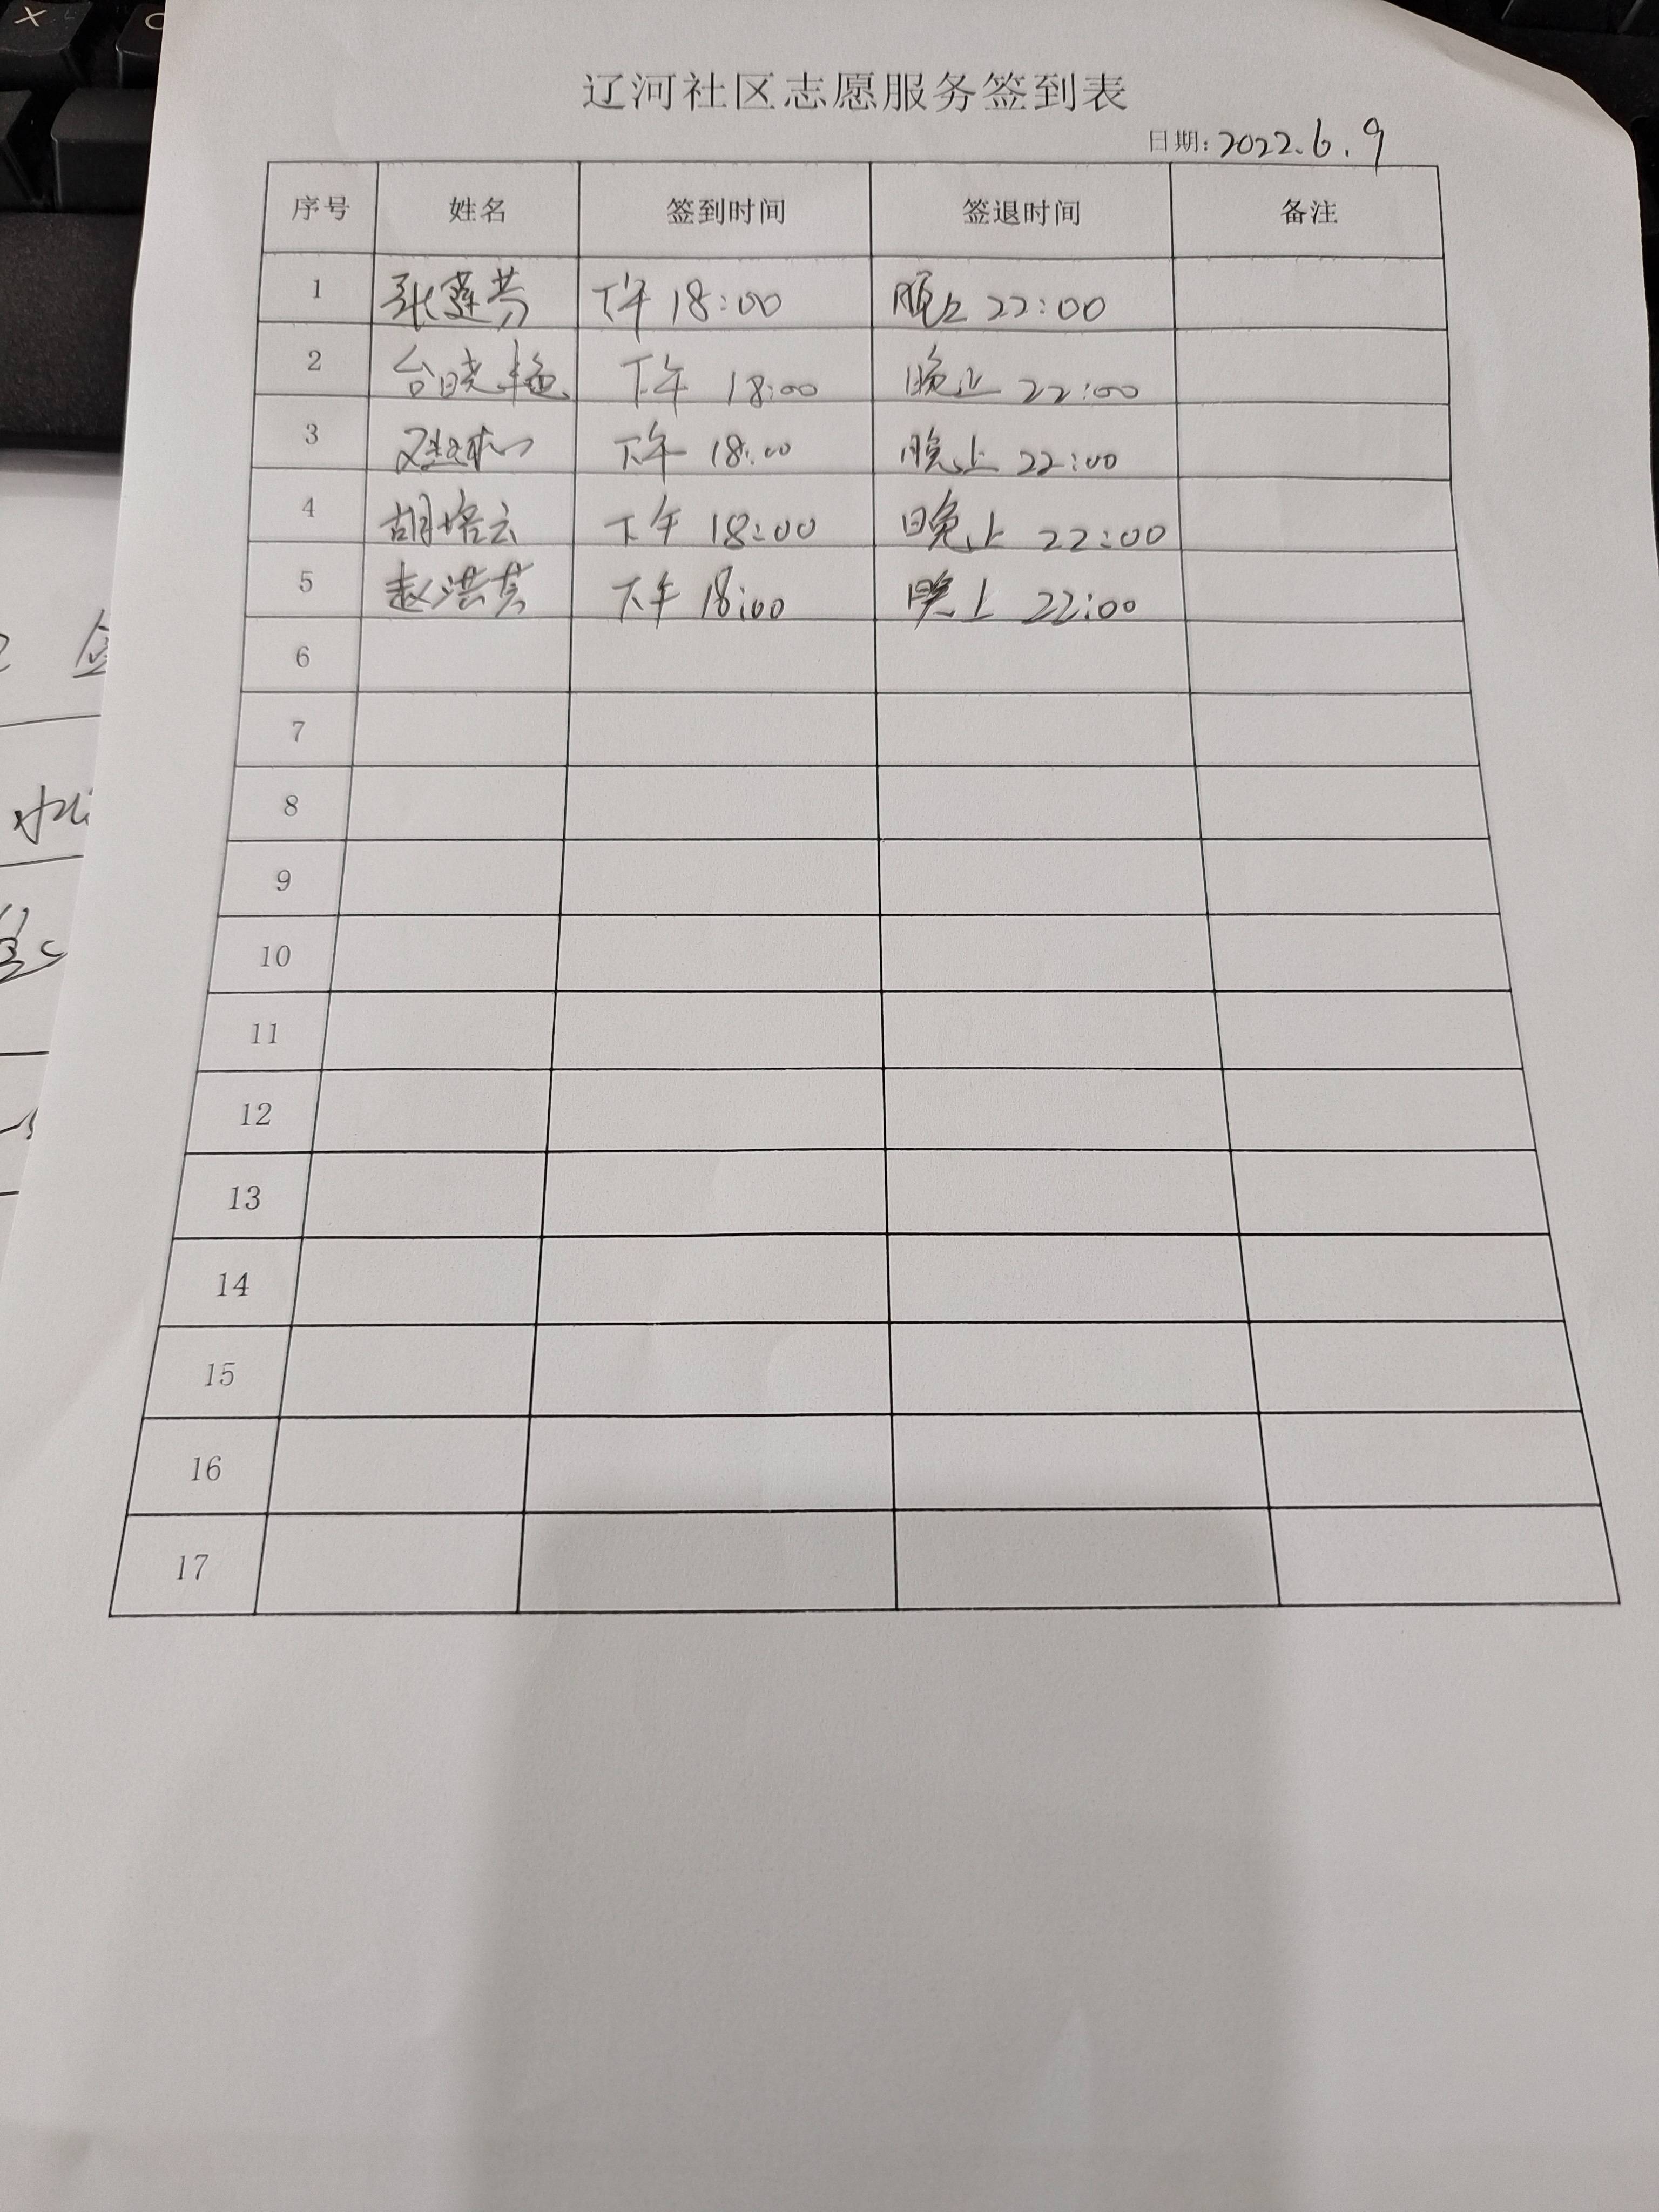 辽河社区志愿服务签到表
日期: 2022.6.9
序号 姓名 签到时间 签退时间 备注
1 张莲芳 下午 18:00 晚上 22:00
2 台晓艳 下午 18:00 晚上 22:00
3 下午 18:00 晚上 22:00
4 胡培云 下午 18:00 晚上 22:00
5 赵洪英 下午 18:00 晚上 22:00
6
7
8
9
10
11
12
13
14
15
16
17